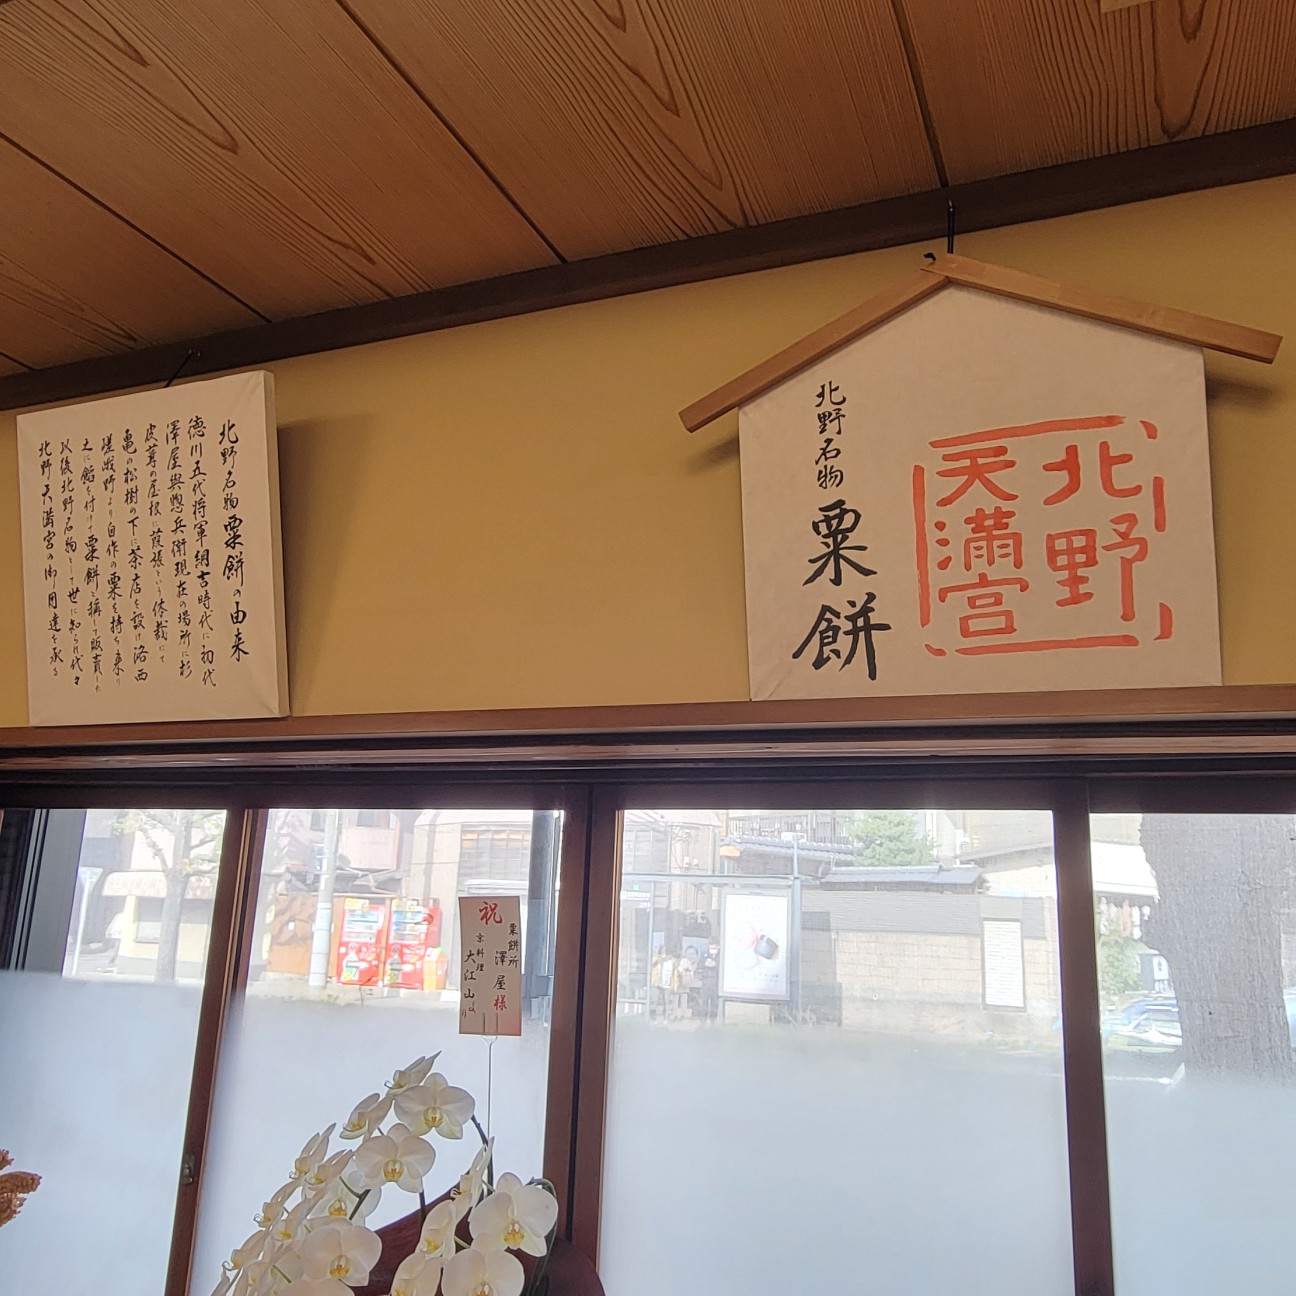 北野名物粟餅の由来
徳川五代将軍綱吉時代に初代
澤屋與惣兵衛現在の場所に杉
皮葺の屋根に葭張という体裁にて
亀の松樹の下に茶店を設け洛西
嵯峨野より自作の粟を持ち来り
之に餡を付けて粟餅と称して販売した
以後北野名物として世に知られ代々
北野天満宮の御用達を承る
北野
天満宮
北野名物
粟餅
祝
粟餅所
澤屋様
京料理
大江山